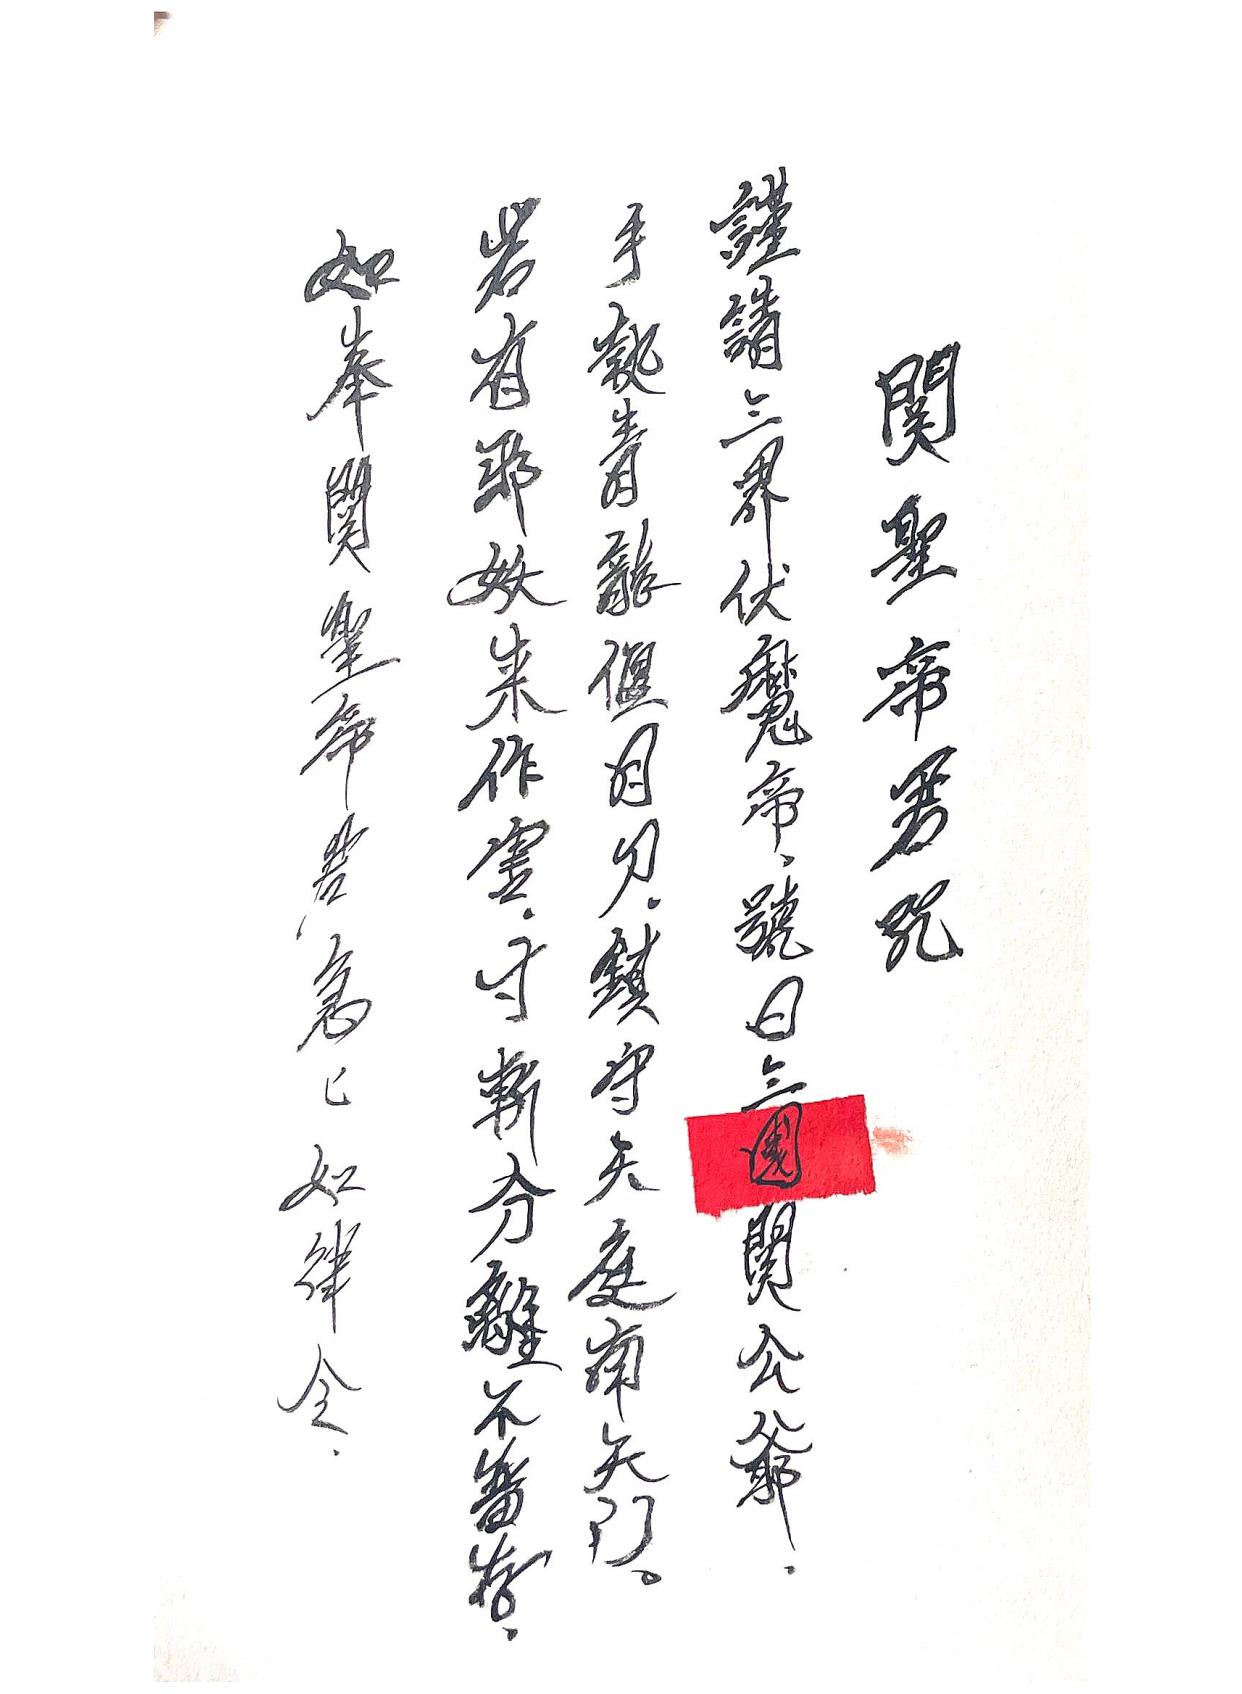 関聖帝君咒
謹請三界伏魔帝、號曰三國関公爺.
手執青龍偃月刀.鎮守天庭南天門。
若有邪妖来作害.寸斬分離不留存.
如奉関聖帝君急々如律令.